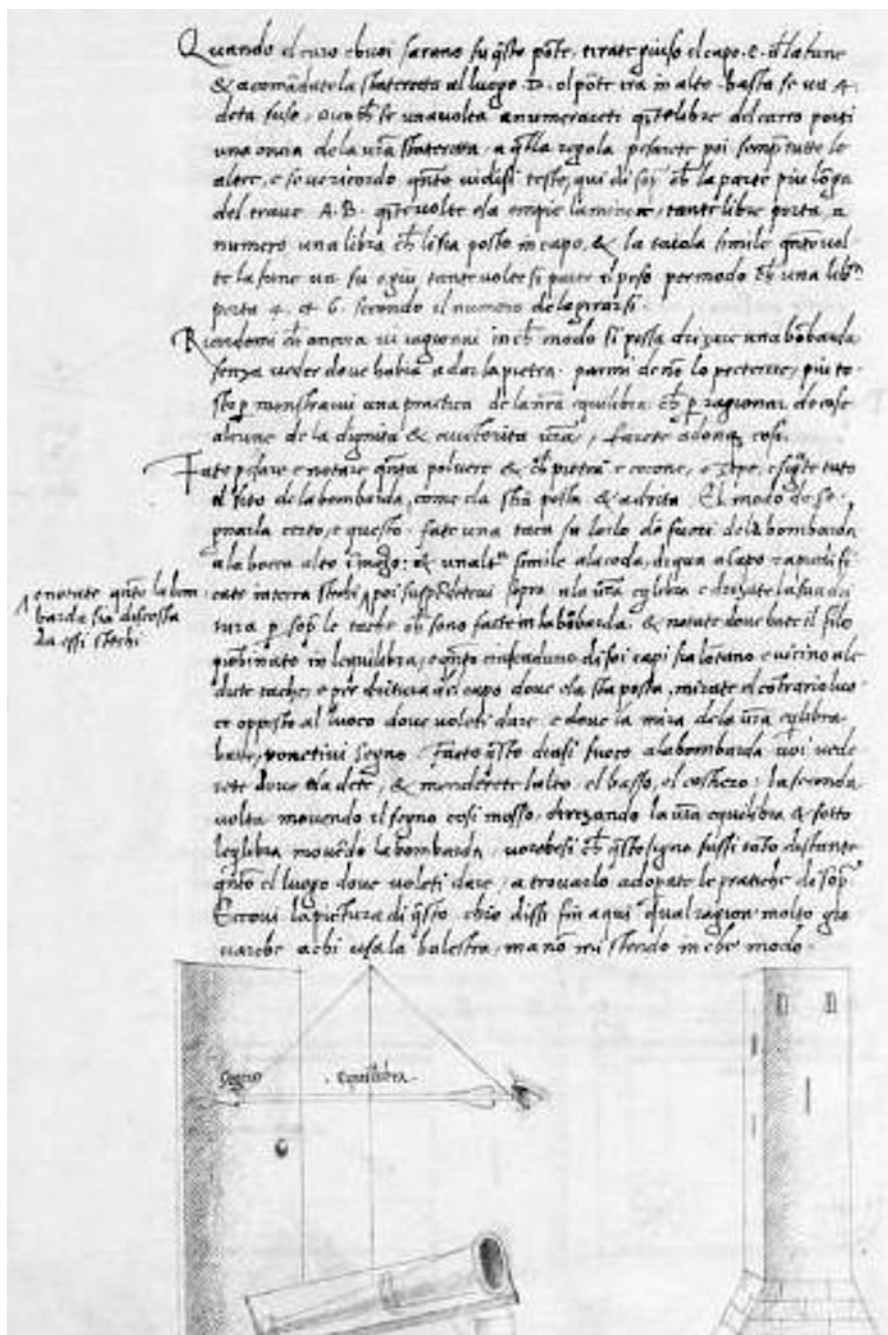 Quando el caro e buoi sarano su q̃sto põte, tirate giuso el capo .C. đ la fune
& acomãdate la staterecta al luogo .D. el põte ira in alto basta se va 4
deta suso, se una volta anumerareti q̃te libre del carro porti
una oncia de la vr̃a staterecta, a q̃lla regola pesarete poi semp̃ tutte le
altre, e se ve ricordo q̃nto vidisti teste, qui di sop̃ ch̃ la parte piu lõga
del trave A.B. q̃te volte ela empie la minore, tante libre porta, a
numero una libra ch̃ li sia posto in capo, & la taiola simile q̃nto vol
te la fune va su e giu tante volte si parte il peso per modo ch̃ una libr̃
porta 4. et 6. secondo il numero de le girarsi.
ch̃ ancora vi ragionni in ch̃ modo si possa drizare una bõbarda
senza veder dove habia a dar la pietra. parmi de nõ lo preterire, piu to
sto p̱ monstrarvi una practica de la nr̃a equilibra, ch̃ p̱ ragionar de cose
alcune de la dignita & auctorita vr̃a, farete adonq̃ cosi.
Fate pesare e notare q̃nta polvere & ch̃ pietra e cocone, e signate tuto
el sito de la bombarda, come ela sta posta & adrita. El modo de se
gnarla certo, e questo. fate una taca su lorlo de fuori dela bombarda
a la bocca alto ĩ mezo: & unaltr̃ simile a la coda, di qua a capo ficcate
cate in terra stechi ∧ poi suspẽdetevi sopra a la vr̃a eqlibra e drizate la sua dri
∧ e notate q̃nto la bom
barda sia discosta
da essi stechi
tura p̱ sop̃ le tache ch̃ sono facte in la bõbarda. & notate dove bate il filo
piõbinato in lequilibra, e q̃nto ciascaduno di soi capi sia lõtano e vicino a le
dute tache, e per dritura del capo dove ela sta posta, mirate el cõtrario luo
co opposto al luoco dove voleti dare e dove la mira de la vr̃a eqlibra
bate, ponetivi segno. Facto q̃sto diasi fuoco a la bombarda voi vede
rete dove ela dete, & menderete lalto, el basso, el costiero: la seconda
volta movendo il segno cosi mosso, drizando la vr̃a equilibra & sotto
leqlibra movẽdo la bombarda, vorebesi ch̃ q̃sto signo fussi tãto distante
q̃nto el luogo dove voleti dare, a trovarlo adopate le pratiche di sop̃
Eccovi la pictura di q̃sto chio dissi fin a qui qual ragion molto gio
varebe a chi usa la balestra, ma nõ mi stendo in che modo.
Segno
Equilibra